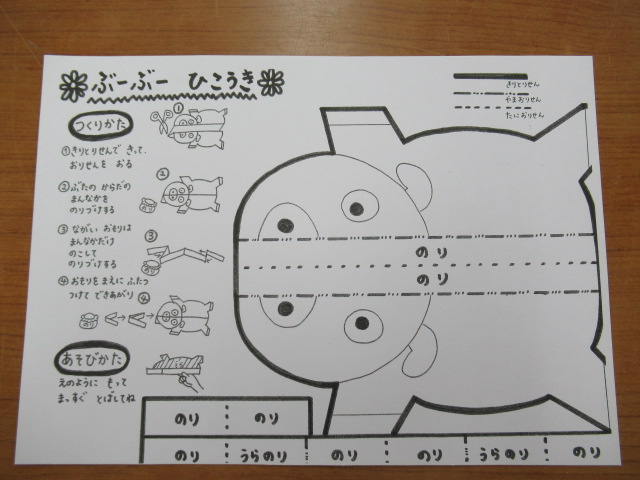 ぶーぶー ひこうき
きりとりせん
やまおりせん
たにおりせん
つくりかた
①きりとりせんで きって、
おりせんを おる
②ぶたの からだの
まんなかを
のりづけする
③ながい おもりは
まんなかだけ
のこして
のりづけする
④おもりを まえに ふたつ
つけて できあがり
①
②
③
④
あそびかた
えのように もって
まっすぐ とばしてね
のり
のり
のり のり
のり うらのり のり のり うらのり のり